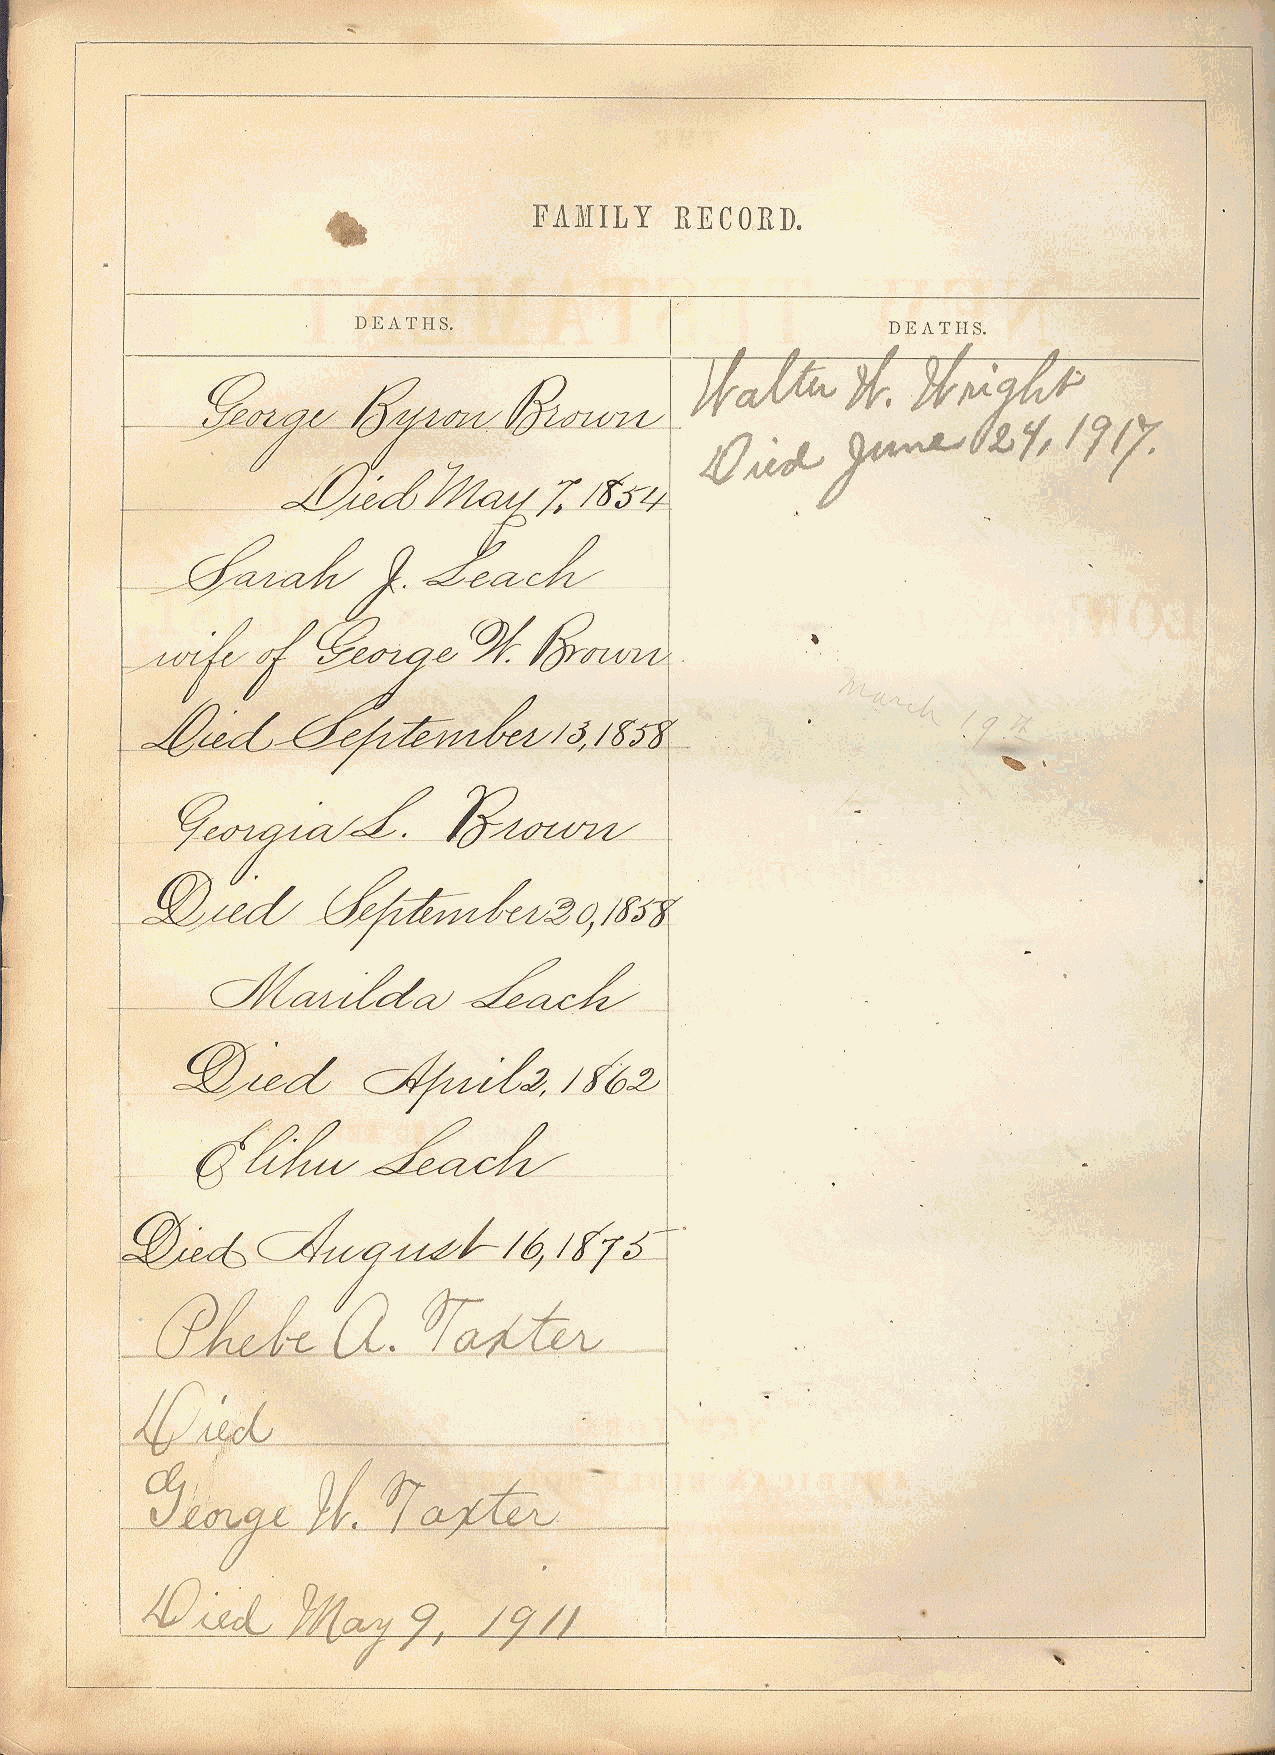 FAMILY RECORD.
DEATHS.
George Byron Brown
Died May 7, 1854
Sarah J. Leach
wife of George W. Brown
Died September 13, 1858
Georgia L. Brown
Died September 20, 1858
Marilda Leach
Died April 2, 1862
Elihu Leach
Died August 16, 1875
Phebe A. Taxter
Died
George W. Taxter
Died May 9, 1911
DEATHS.
Walter W. Wright
Died June 24, 1917.
March 19th